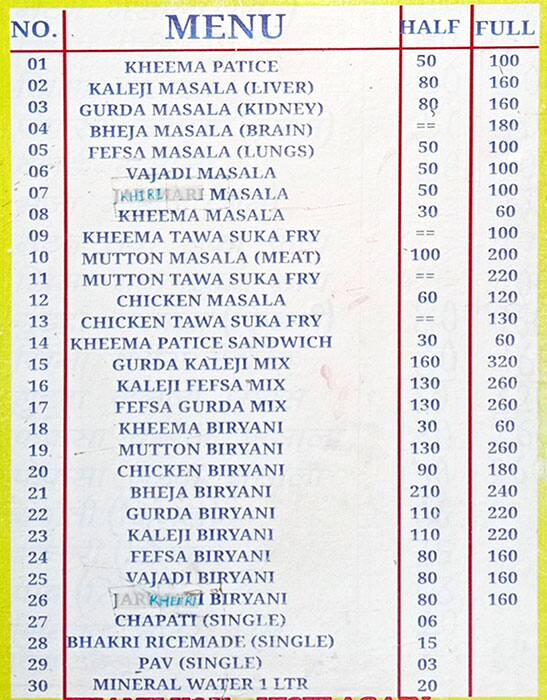 NO. MENU HALF FULL
01 KHEEMA PATICE 50 100
02 KALEJI MASALA (LIVER) 80 160
03 GURDA MASALA (KIDNEY) 80 160
04 BHEJA MASALA (BRAIN) == 180
05 FEFSA MASALA (LUNGS) 50 100
06 VAJADI MASALA 50 100
07 KHIRI MASALA 50 100
08 KHEEMA MASALA 30 60
09 KHEEMA TAWA SUKA FRY == 100
10 MUTTON MASALA (MEAT) 100 200
11 MUTTON TAWA SUKA FRY == 220
12 CHICKEN MASALA 60 120
13 CHICKEN TAWA SUKA FRY == 130
14 KHEEMA PATICE SANDWICH 30 60
15 GURDA KALEJI MIX 160 320
16 KALEJI FEFSA MIX 130 260
17 FEFSA GURDA MIX 130 260
18 KHEEMA BIRYANI 30 60
19 MUTTON BIRYANI 130 260
20 CHICKEN BIRYANI 90 180
21 BHEJA BIRYANI 210 240
22 GURDA BIRYANI 110 220
23 KALEJI BIRYANI 110 220
24 FEFSA BIRYANI 80 160
25 VAJADI BIRYANI 80 160
26 KHEERI BIRYANI 80 160
27 CHAPATI (SINGLE) 06
28 BHAKRI RICEMADE (SINGLE) 15
29 PAV (SINGLE) 03
30 MINERAL WATER 1 LTR 20